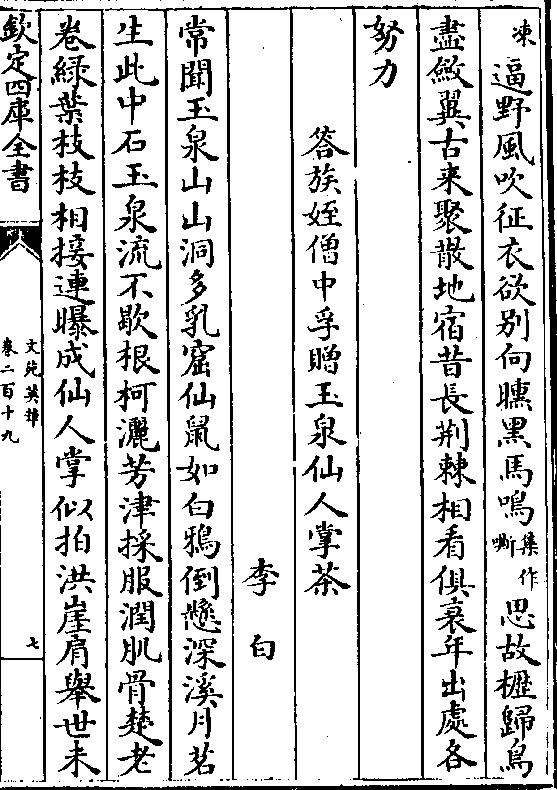 凍逼野風吹征衣欲别向曛黒馬鳴集作嘶思故櫪歸鳥
盡斂翼古来聚散地宿昔長荆棘相看俱衰年出處各
努力
答族姪僧中孚贈玉泉仙人掌茶
李白
常聞玉泉山山洞多乳窟仙鼠如白鴉倒懸深溪月茗
生此中石玉泉流不歇根柯灑芳津採服潤肌骨楚老
卷緑葉枝枝相接連曝成仙人掌似拍洪崖肩舉世未
欽定四庫全書
文苑英華
卷二百十九
七